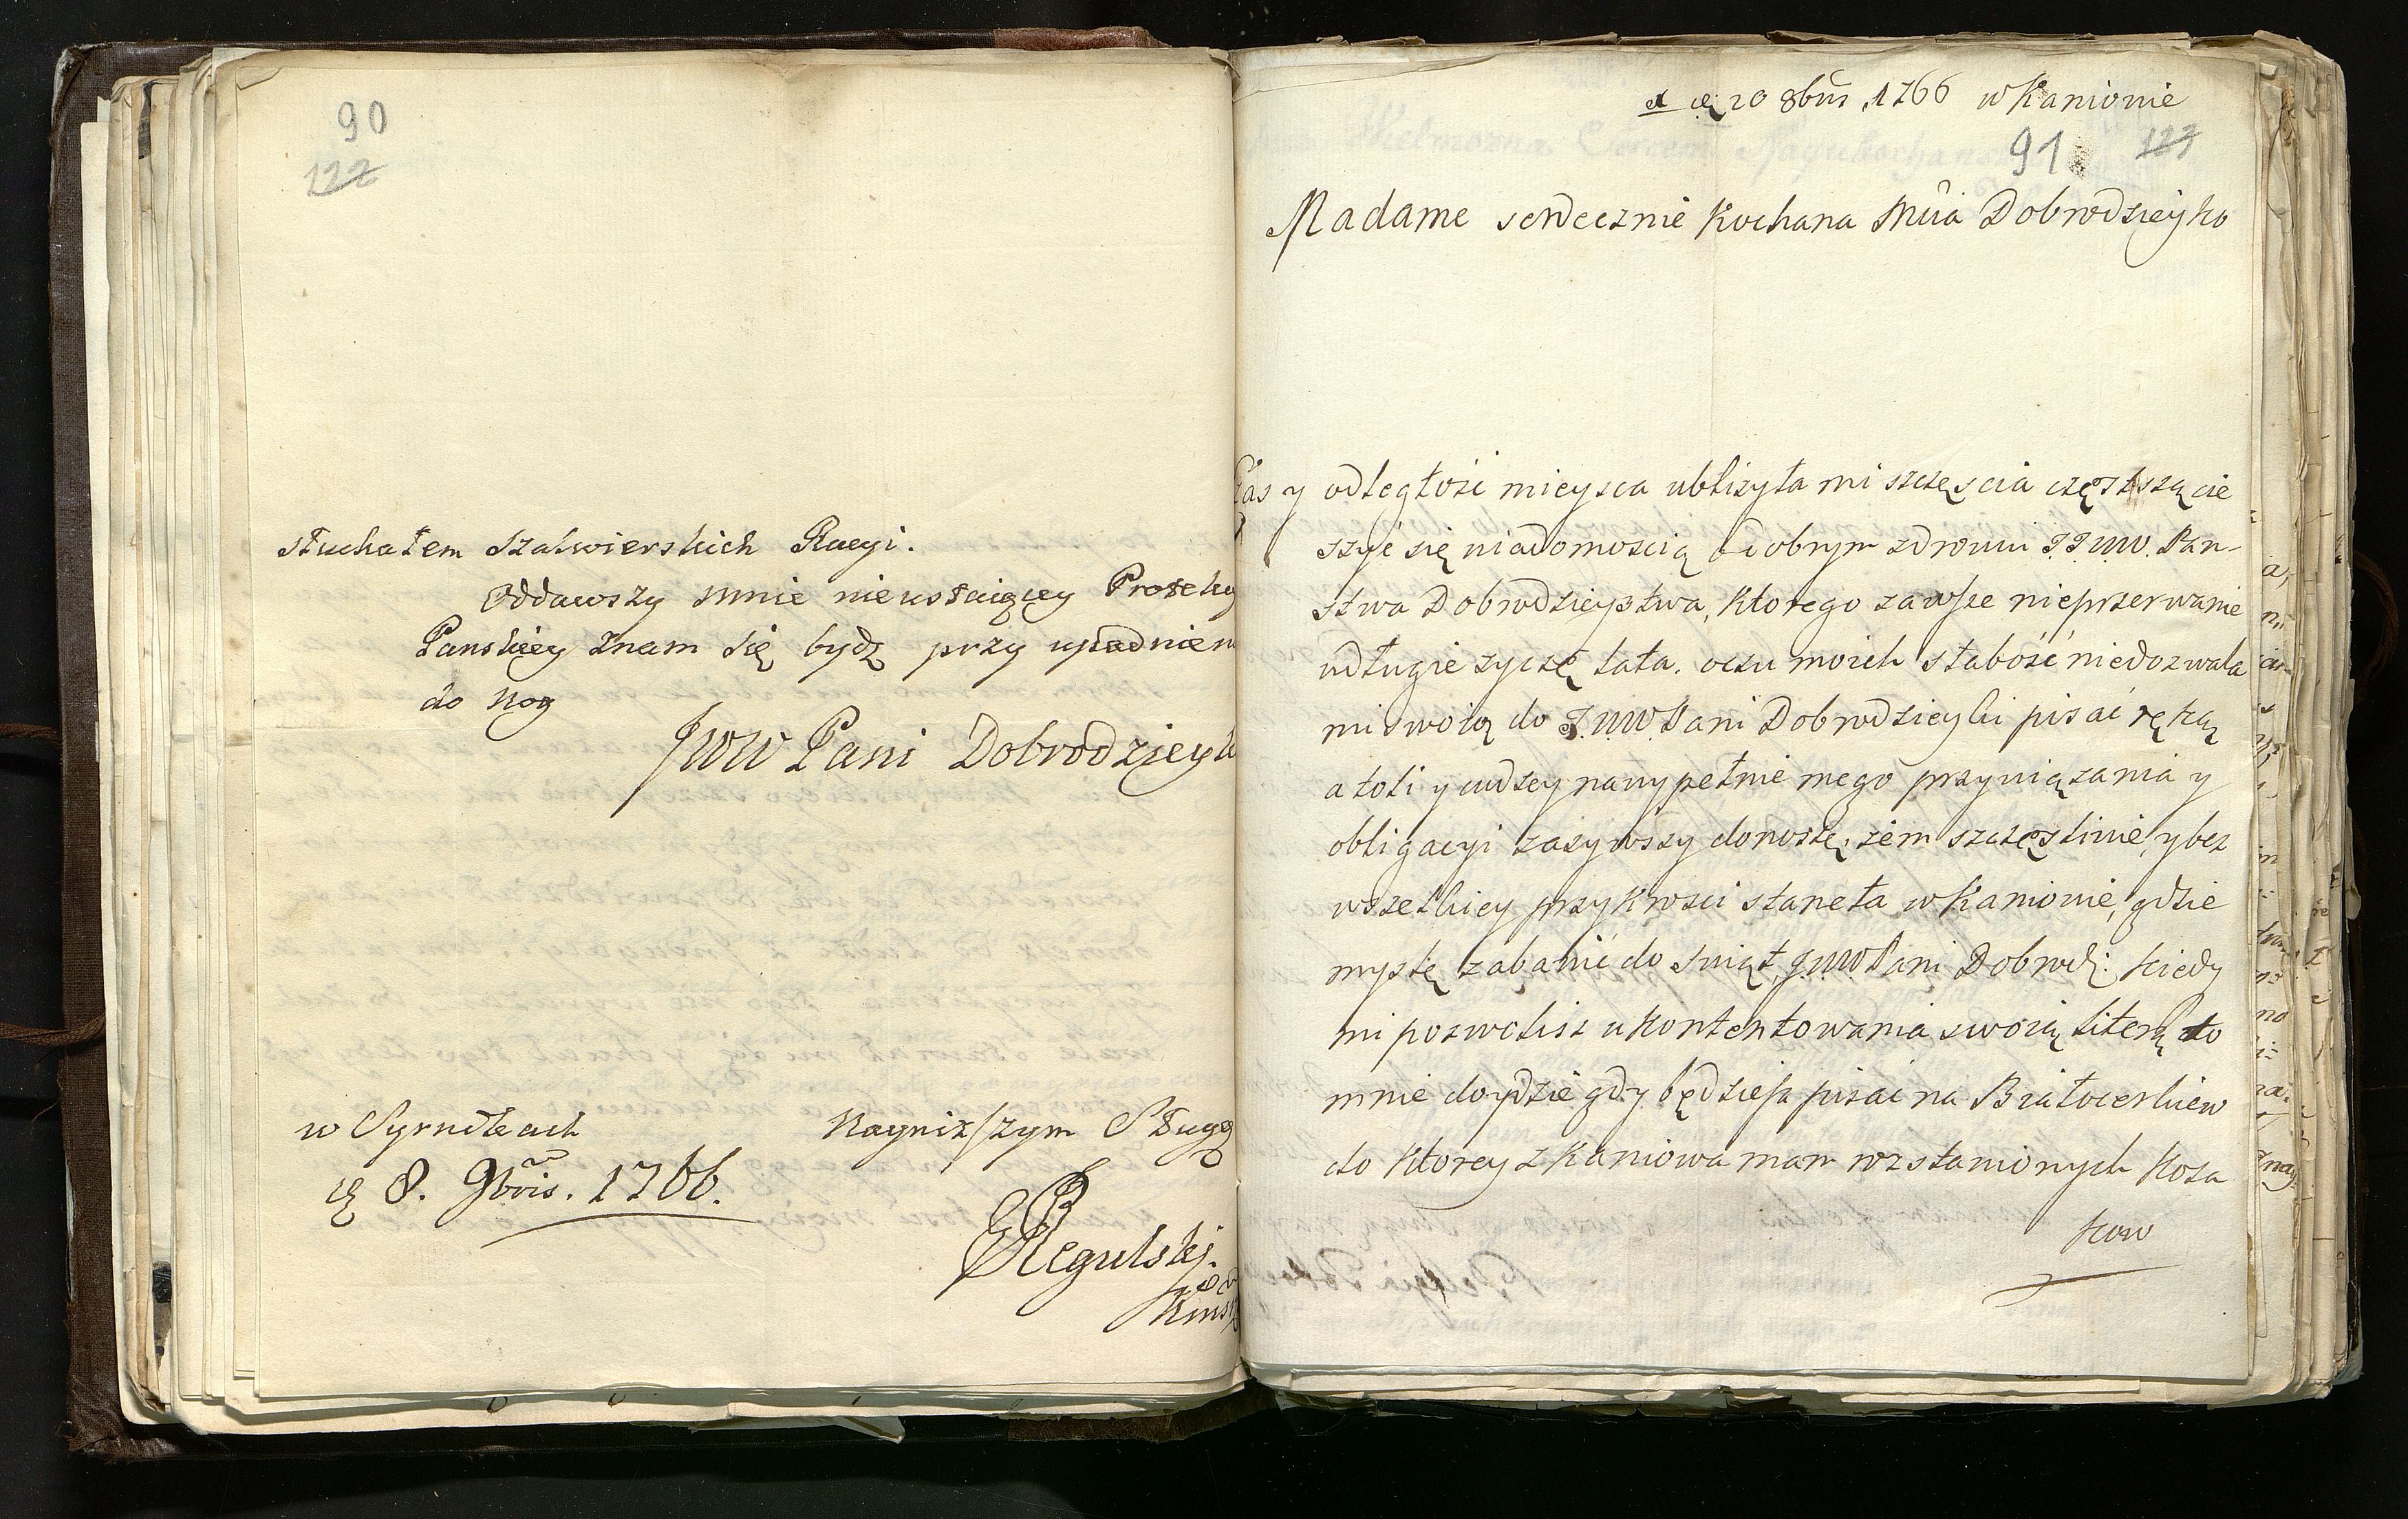 90
122
słuchałem szalwierskich Racyi.
Oddawszy mnie nieustaiący Protekcy
Panskiey znam się bydz przy upadnien
do nog
JWW Pani Dobrodzieyk
w Syrnikach
Nayniższym Sługą
8. 9bris. 1766.
Regulskj.
20 8bris 1766 w Kaniowie
91 127
Madame serdecznie Kochana Mcia Dobrodzieyko
Czas y odległość mieysca ubliżyła mi szczęścia częstszą cie
szyć się wiadomoscią o dobrym zdrowiu J.J.WW. Pan-
stwa Dobrodzieystwa, ktorego zawsze nieprzerwanie
w długie zyczę lata. oczu moich słabość niedozwala
mi swoią do J.WW. Pani Dobrodzieyki pisać ręką
a toli y cudzey na wypełnie mego przywiązania y
obligacyi zażywszy donoszę, żem szczęsliwie, y bez
wszelkiey przykrosci staneła w Kaniowie, gdzie
myslę zabawić do swiąt, J.WW. Pani Dobrodz: kiedy
mi pozwolisz ukontentowania swoią literą to
mnie doydzie gdy będziesz pisać na Białocerkiew
do ktorey z Kaniowa mam rozstawionych koza
kow